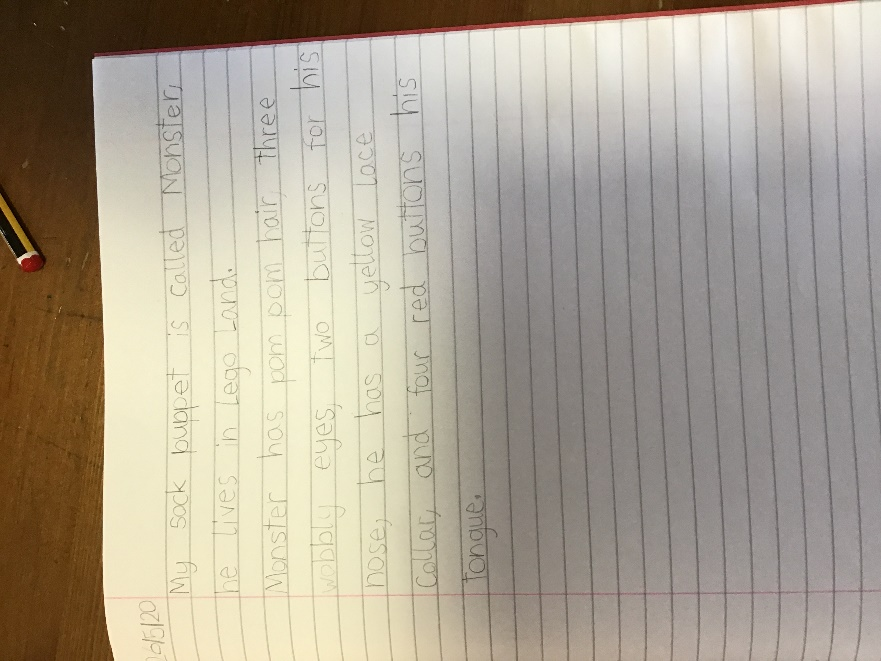 My sock puppet is called Monster,
he lives in Lego Land.
Monster has pom pom hair, three
wobbly eyes, two buttons for his
nose, he has a yellow lace
Collar, and four red buttons his
tongue.